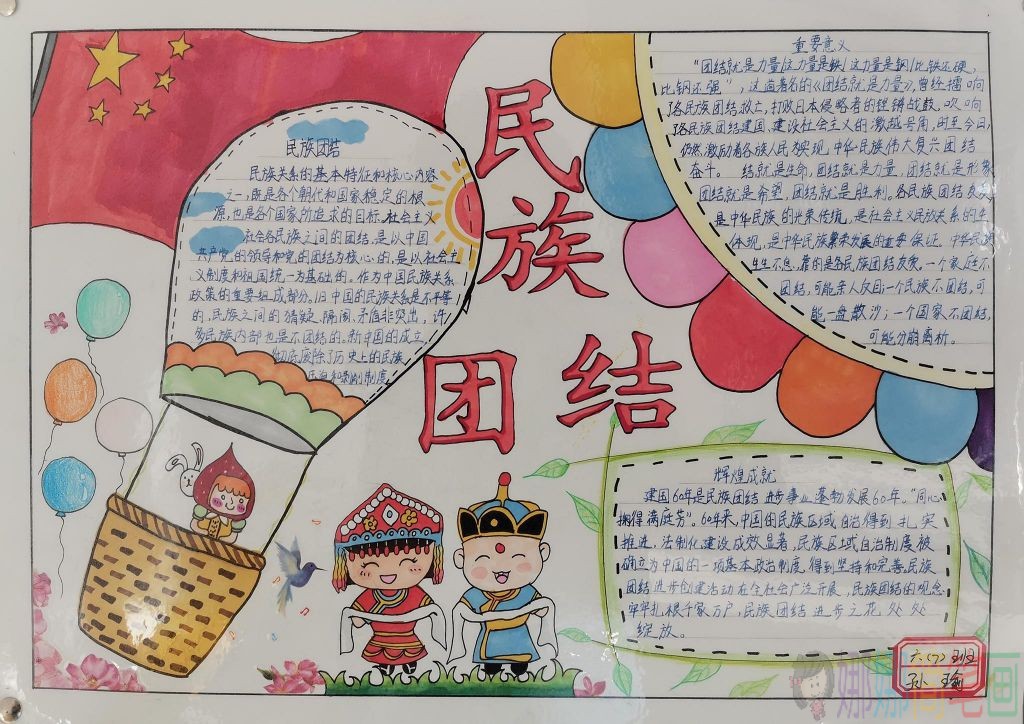 民族团结
民族团结
民族关系的基本特征和核心内容
之一,既是各个朝代和国家稳定的根
源,也是各个国家所追求的目标.社会主义
社会各民族之间的团结,是以中国
共产党的领导和党的团结为核心的,是以社会主
义制度和祖国统一为基础的。作为中国民族关系
政策的重要组成部分.旧中国的民族关系是不平等
的,民族之间的猜疑、隔阂、矛盾非突出,许
多民族内部也是不团结的。新中国的成立
彻底废除了历史上的民族
压迫和剥削制度
重要意义
“团结就是力量,这力量是铁,这力量是钢,比铁还硬,
比钢还强”,这首著名的《团结就是力量》,曾经擂响
了各民族团结救亡,打败日本侵略者的铿锵战鼓,吹响
了各民族团结建国、建设社会主义的激越号角,时至今日,
仍然激励着各族人民为实现中华民族伟大复兴团结
奋斗。 结就是生命,团结就是力量,团结就是形象
团结就是希望,团结就是胜利。各民族团结友
是中华民族的光荣传统,是社会主义民族关系的
体现,是中华民族繁荣发展的重要保证,中华民
生生不息,靠的是各民族团结友爱。一个家庭不
团结,可能亲人反目;一个民族不团结,可
能一盘散沙;一个国家不团结,
可能分崩离析。
辉煌成就
建国60年是民族团结进步事业蓬勃发展60年。“同心
拥得满庭芳”。60年来,中国的民族区域自治得到扎实
推进,法制化建设成效显著,民族区域自治制度被
确立为中国的一项基本政治制度,得到坚持和完善民族
团结进步创建活动在全社会广泛开展,民族团结的观念
牢牢扎根千家万户,民族团结进步之花处处
绽放。
六(7)班
孙瑜
娜娜简笔画